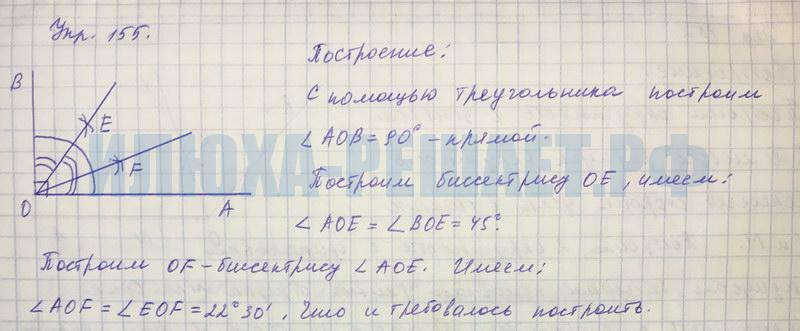 Упр. 155.
Построение:
С помощью треугольника построим
∠AOB = 90° - прямой.
Построим биссектрису OE, имеем:
∠AOE = ∠BOE = 45°.
Построим OF - биссектрису ∠AOE. Имеем:
∠AOF = ∠EOF = 22°30', Что и требовалось построить.
B
E
F
O
A
ИЛЮХА-РЕШАЕТ.РФ